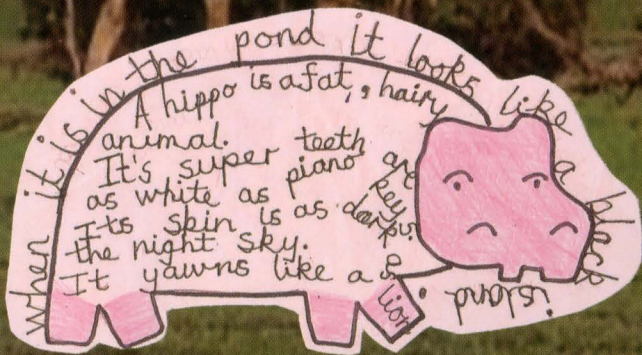 when it is in the pond it looks like a black island.
A hippo is a fat, hairy
animal.
It's super teeth are
as white as piano keys.
Its skin is as dark as
the night sky.
It yawns like a lion